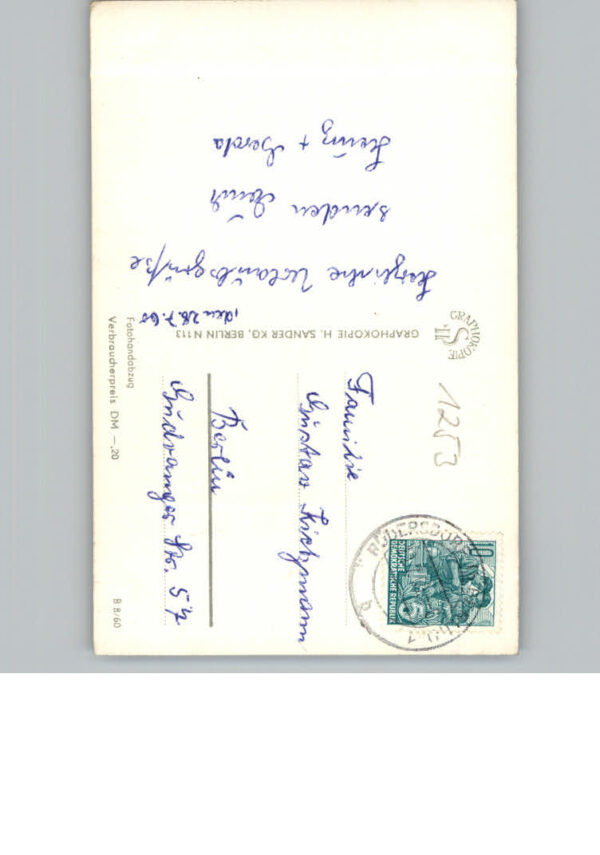 den 28.7.60
Herzliche Urlaubsgrüße
senden Euch
Heinz + Gerda
Familie
Gustav Kietzmann
Berlin
Gudvanger Str. 57
1253
GRAPHOKOPIE
GRAPHOKOPIE H. SANDER KG, BERLIN N 113
Fotohandabzug
Verbraucherpreis DM —,20
B 8/60
RÜDERSDORF
10
DEUTSCHE
DEMOKRATISCHE REPUBLIK